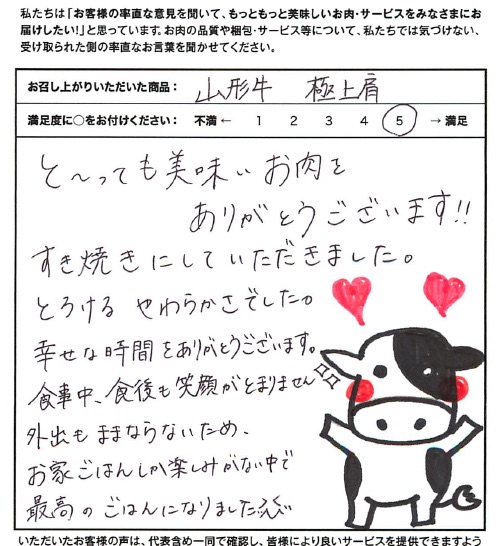 私たちは「お客様の率直な意見を聞いて、もっともっと美味しいお肉・サービスをみなさまにお
届けしたい！」と思っています。お肉の品質や梱包・サービス等について、私たちでは気づけない、
受け取られた側の率直なお言葉を聞かせてください。
お召し上がりいただいた商品： 山形牛 極上肩
満足度に○をお付けください： 不満 ← 1 2 3 4 5 → 満足
と〜っても美味しいお肉を
ありがとうございます!!
すき焼きにしていただきました。
とろける やわらかさでした。
幸せな時間をありがとうございます。
食事中、食後も笑顔がとまりません
外出も ままならないため、
お家ごはんしか楽しみがない中で
最高の ごはんになりました
いただいたお客様の声は、代表含め一同で確認し、皆様により良いサービスを提供できますよう